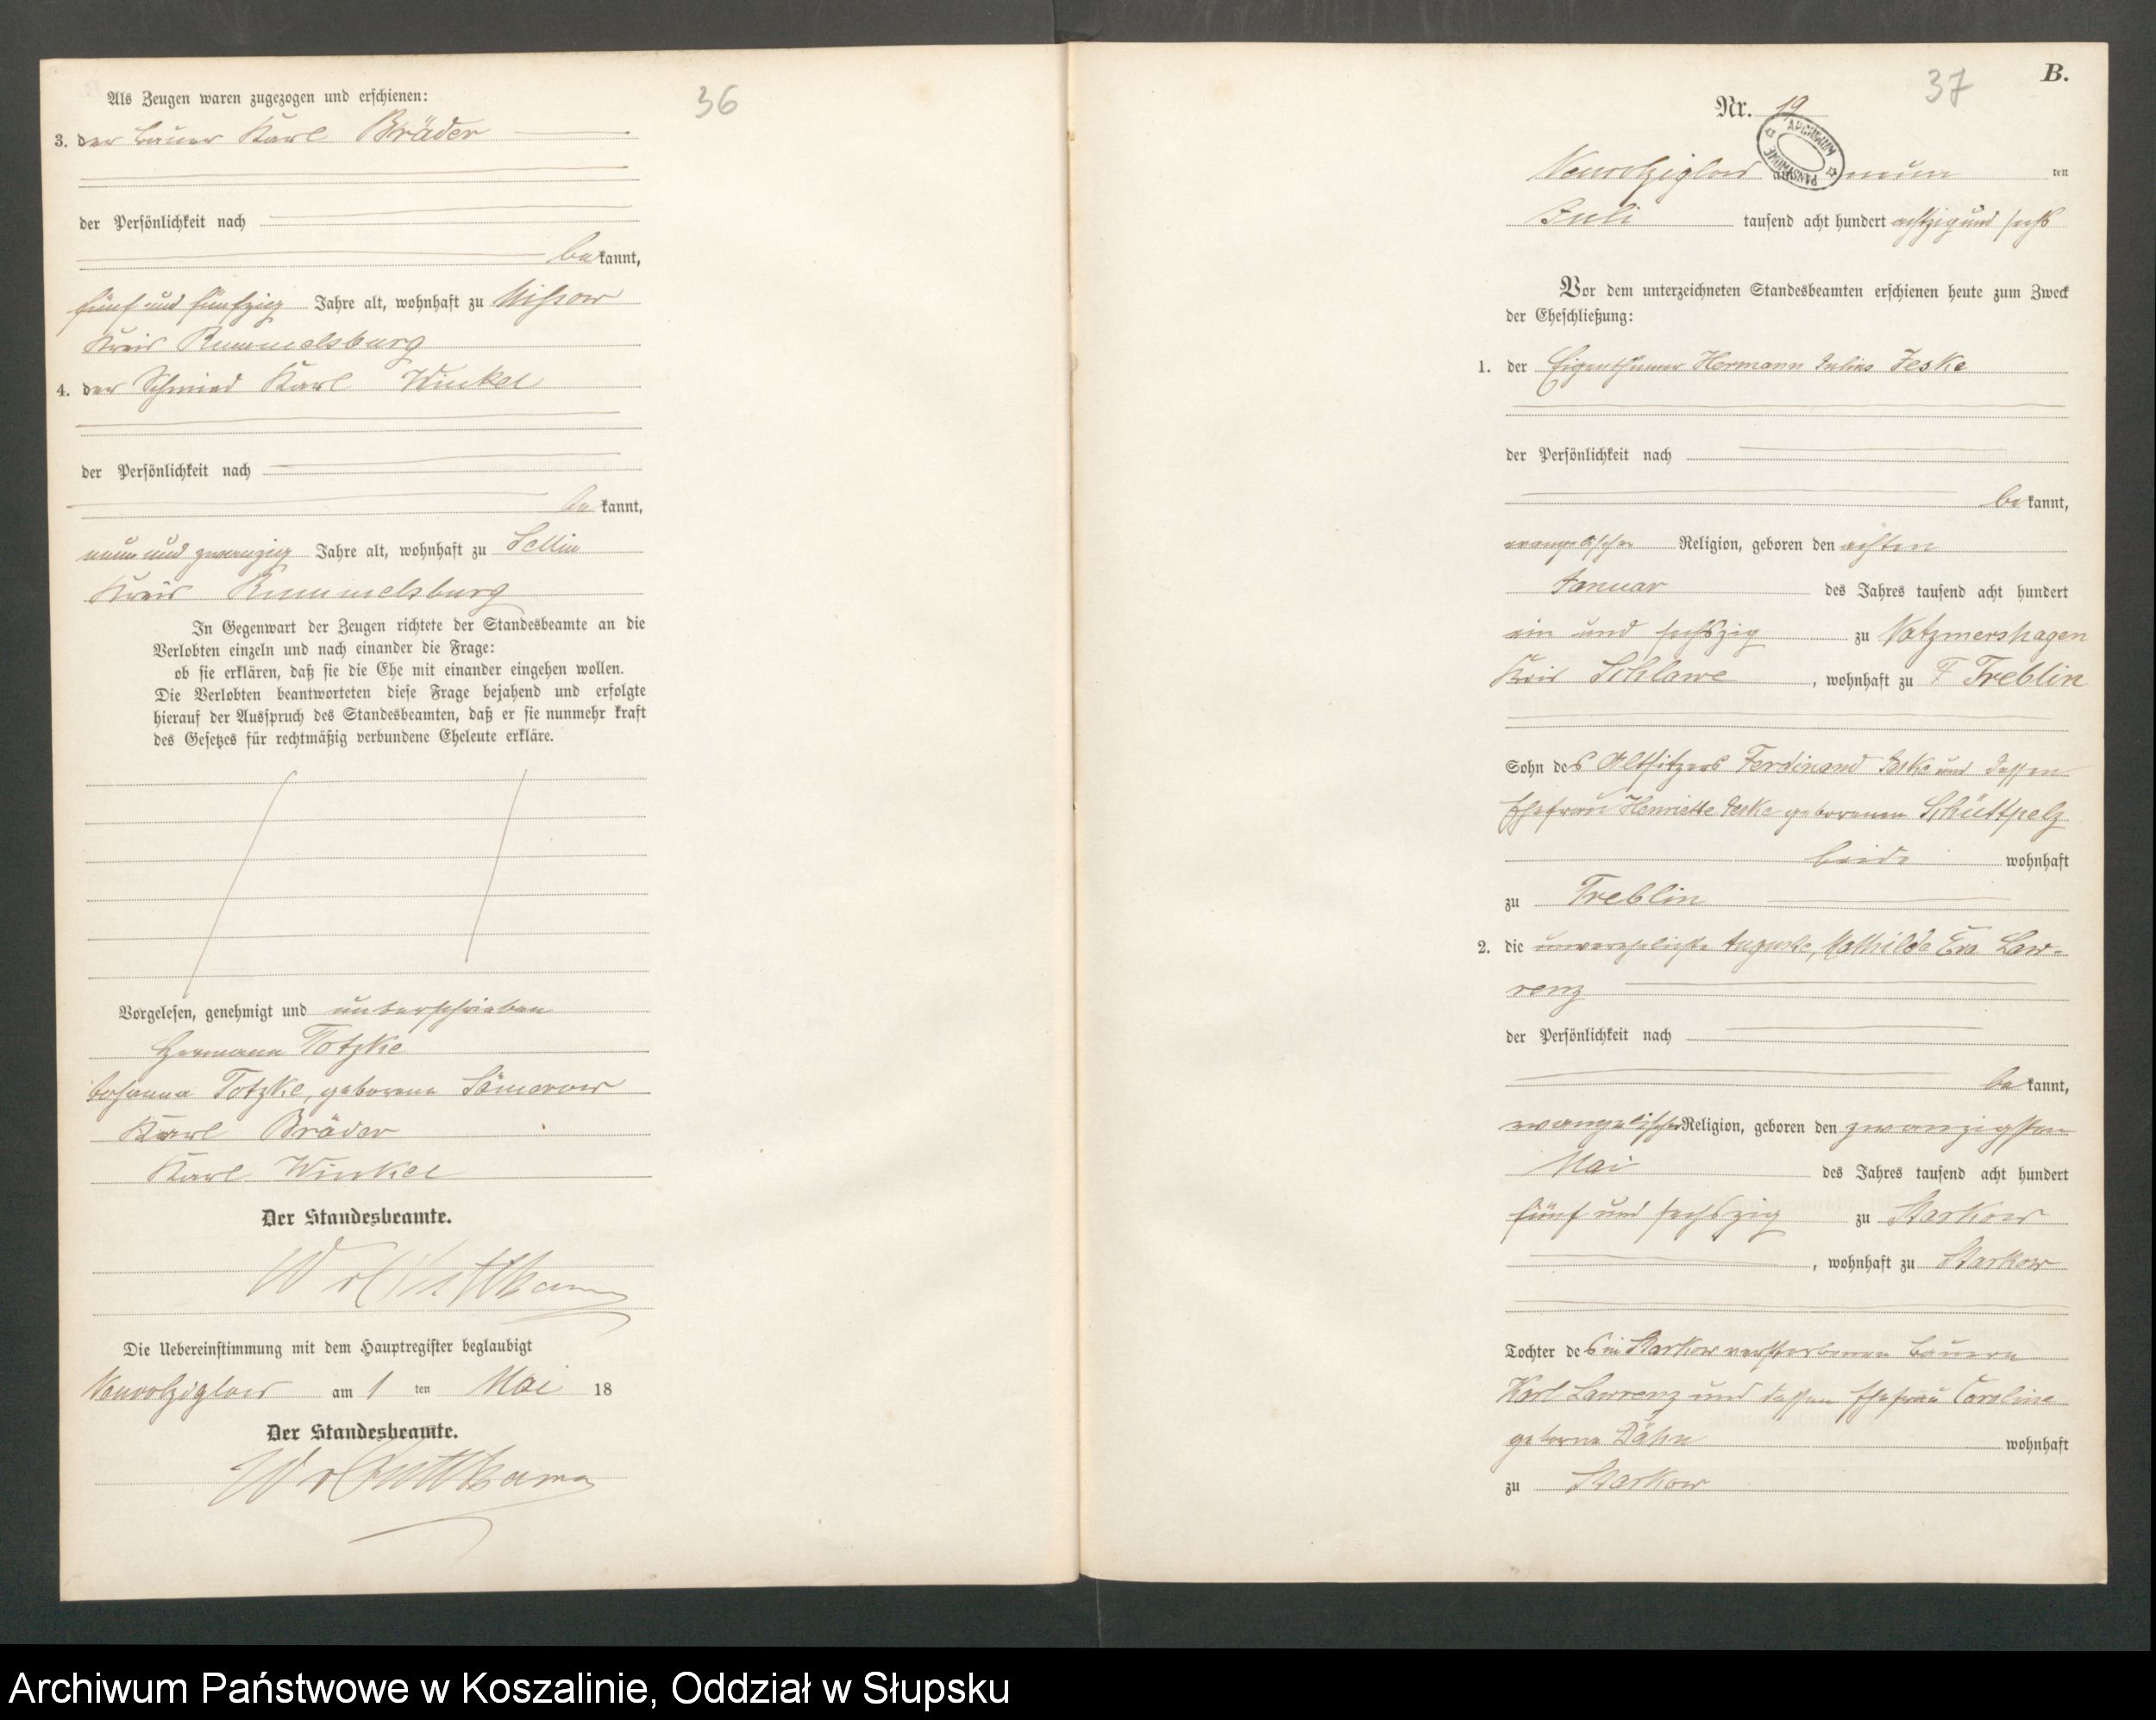 36
Als Zeugen waren zugezogen und erschienen:
3. der Bauer Karl Bräder
der Persönlichkeit nach
bekannt,
fünf und fünfzig Jahre alt, wohnhaft zu Missow
Kreis Rummelsburg
4. der Schmied Karl Winkel
der Persönlichkeit nach
bekannt,
neun und zwanzig Jahre alt, wohnhaft zu Sellin
Kreis Rummelsburg
In Gegenwart der Zeugen richtete der Standesbeamte an die
Verlobten einzeln und nach einander die Frage:
ob sie erklären, daß sie die Ehe mit einander eingehen wollen.
Die Verlobten beantworteten diese Frage bejahend und erfolgte
hierauf der Ausspruch des Standesbeamten, daß er sie nunmehr kraft
des Gesetzes für rechtmäßig verbundene Eheleute erkläre.
Vorgelesen, genehmigt und unterschrieben
Hermann Totzke
Johanna Totzke, geborene
Karl Bräder
Karl Winkel
Der Standesbeamte.
Die Uebereinstimmung mit dem Hauptregister beglaubigt
am 1 ten Mai 18
Der Standesbeamte.
37
B.
Nr. 19
ARCHIWUM PAŃSTWOWE
am neun ten
Juli tausend acht hundert achtzig und sechs
Vor dem unterzeichneten Standesbeamten erschienen heute zum Zweck
der Eheschließung:
1. der Eigenthümer Hermann Julius Jeske
der Persönlichkeit nach
bekannt,
evangelischer Religion, geboren den achten
Januar des Jahres tausend acht hundert
ein und sechszig zu Natzmershagen
Kreis Schlawe, wohnhaft zu Treblin
Sohn des Altsitzers Ferdinand Jeske und dessen
Ehefrau Henriette Jeske geborenen Schüttpelz
beide wohnhaft
zu Treblin
2. die unverehelichte Auguste, Mathilde Eva Law-
renz
der Persönlichkeit nach
bekannt,
evangelischer Religion, geboren den zwanzigsten
Mai des Jahres tausend acht hundert
fünf und sechszig zu Starkow
, wohnhaft zu Starkow
Tochter des in Starkow verstorbenen Bauern
Karl Lawrenz und dessen Ehefrau Caroline
geborne Dähn wohnhaft
zu Starkow
Archiwum Państwowe w Koszalinie, Oddział w Słupsku